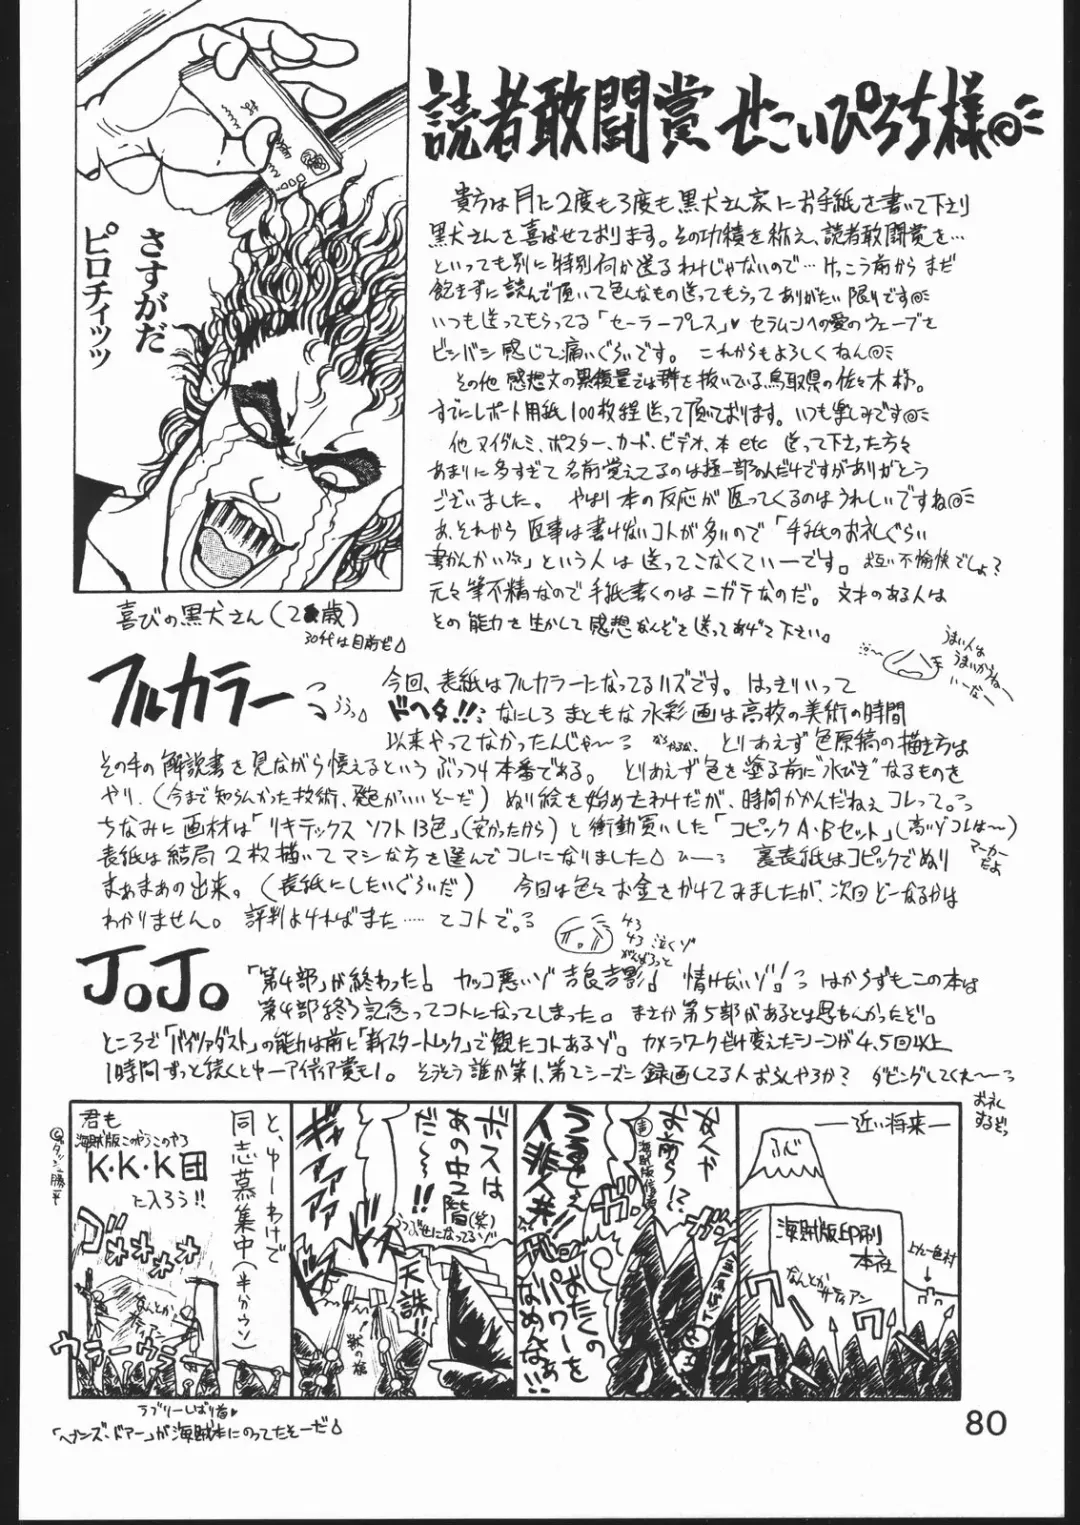 さすがだ
ピロチィッッ
喜びの黒犬さん(2 歳)
30代は目前だ
読者敢闘賞 せこいぴろち様
貴方は月に2度も3度も黒犬さん家にお手紙を書いて下さり
黒犬さんを喜ばせております。その功績を称え、読者敢闘賞を…
といっても別に特別何か送るわけじゃないので…けっこう前からまだ
飽きずに読んで頂いて色んなもの送ってもらってありがたい限りです
いつも送ってもらってる「セーラープレス」♥ セラムンへの愛のウェーブを
ビンバシ感じて痛いぐらいです。 これからもよろしくねん
その他感想文の累積量では群を抜いている鳥取県の佐々木様。
すでにレポート用紙100枚程送って頂いております。いつも楽しみです
他ヌイグルミ、ポスター、カード、ビデオ、本etc 送って下さった方々
あまりに多すぎて名前覚えてるのは極一部の人だけですがありがとう
ございました。 やはり本の反応が返ってくるのはうれしいですね
あ、それから返事は書けないコトが多いので「手紙のお礼ぐらい
書かんかい」という人は送ってこなくていーです。お互い不愉快でしょ?
元々筆不精なので手紙書くのはニガテなのだ。文才のある人は
その能力を生かして感想なんぞを送ってあげて下さい。
うまい人は
うまいからねー
いーなー
フルカラー
今回、表紙はフルカラーになってるハズです。はっきりいって
ドヘタ!!
なにしろまともな水彩画は高校の美術の時間
以来やってなかったんじゃ〜
とりあえず色原稿の描き方は
その手の解説書を見ながら憶えるというぶっつけ本番である。 とりあえず色を塗る前に"水ひき"なるものを
やり、(今まで知らんかった技術、発色がいいそーだ)ぬり絵を始めたわけだが、時間かかんだねぇコレって。
ちなみに画材は「リキテックス ソフト13色」(安かったから)と衝動買いした「コピックA・Bセット」(高いゾコレは〜)
マーカーだよ
表紙は結局2枚描いてマシな方を選んでコレになりました ひーっ 裏表紙はコピックでぬり
まぁまぁの出来。(表紙にしたいぐらいだ) 今回は色々お金をかけてみましたが、次回どーなるかは
わかりません。評判よければまた…… てコトで。
泣くゾ
JoJo
「第4部」が終わった! カッコ悪いゾ吉良吉影! 情けないゾ! はからずもこの本は
第4部終了記念ってコトになってしまった。まさか第5部があるとは思わんかったぞ。
ところで「バイツァダスト」の能力は前に「新スタートレック」で観たコトあるゾ。カメラワークだけ変えたシーンが4,5回以上
1時間ずっと続くとゆーアイディア賞も1。そうそう誰か第1、第2シーズン録画してる人おらんやろか? ダビングしてくれ〜っ
お礼するぞっ
―近い将来―
ふじ
海賊版印刷
本社
なんとかサティアン
上九一色村
女への
お前ら!?
うるせぇ
人非人共!!
おたくの
パワーを
なめんなぁ!!
ボスは
あの中2階(笑)
だ〜!!
うつぶせになってるゾ
天誅!!
獣の槍
ギャアアアア
と、ゆーわけで
同志募集中(半分ウソ)
君も
海賊版このやろこのやろ
K・K・K団
に入ろう!!
ヴオオオオ
なんとかサティアン
ウラーウラー
ラブリーしおり首♥
「ヘブンズ・ドアー」が海賊本にのってたそーだ
80